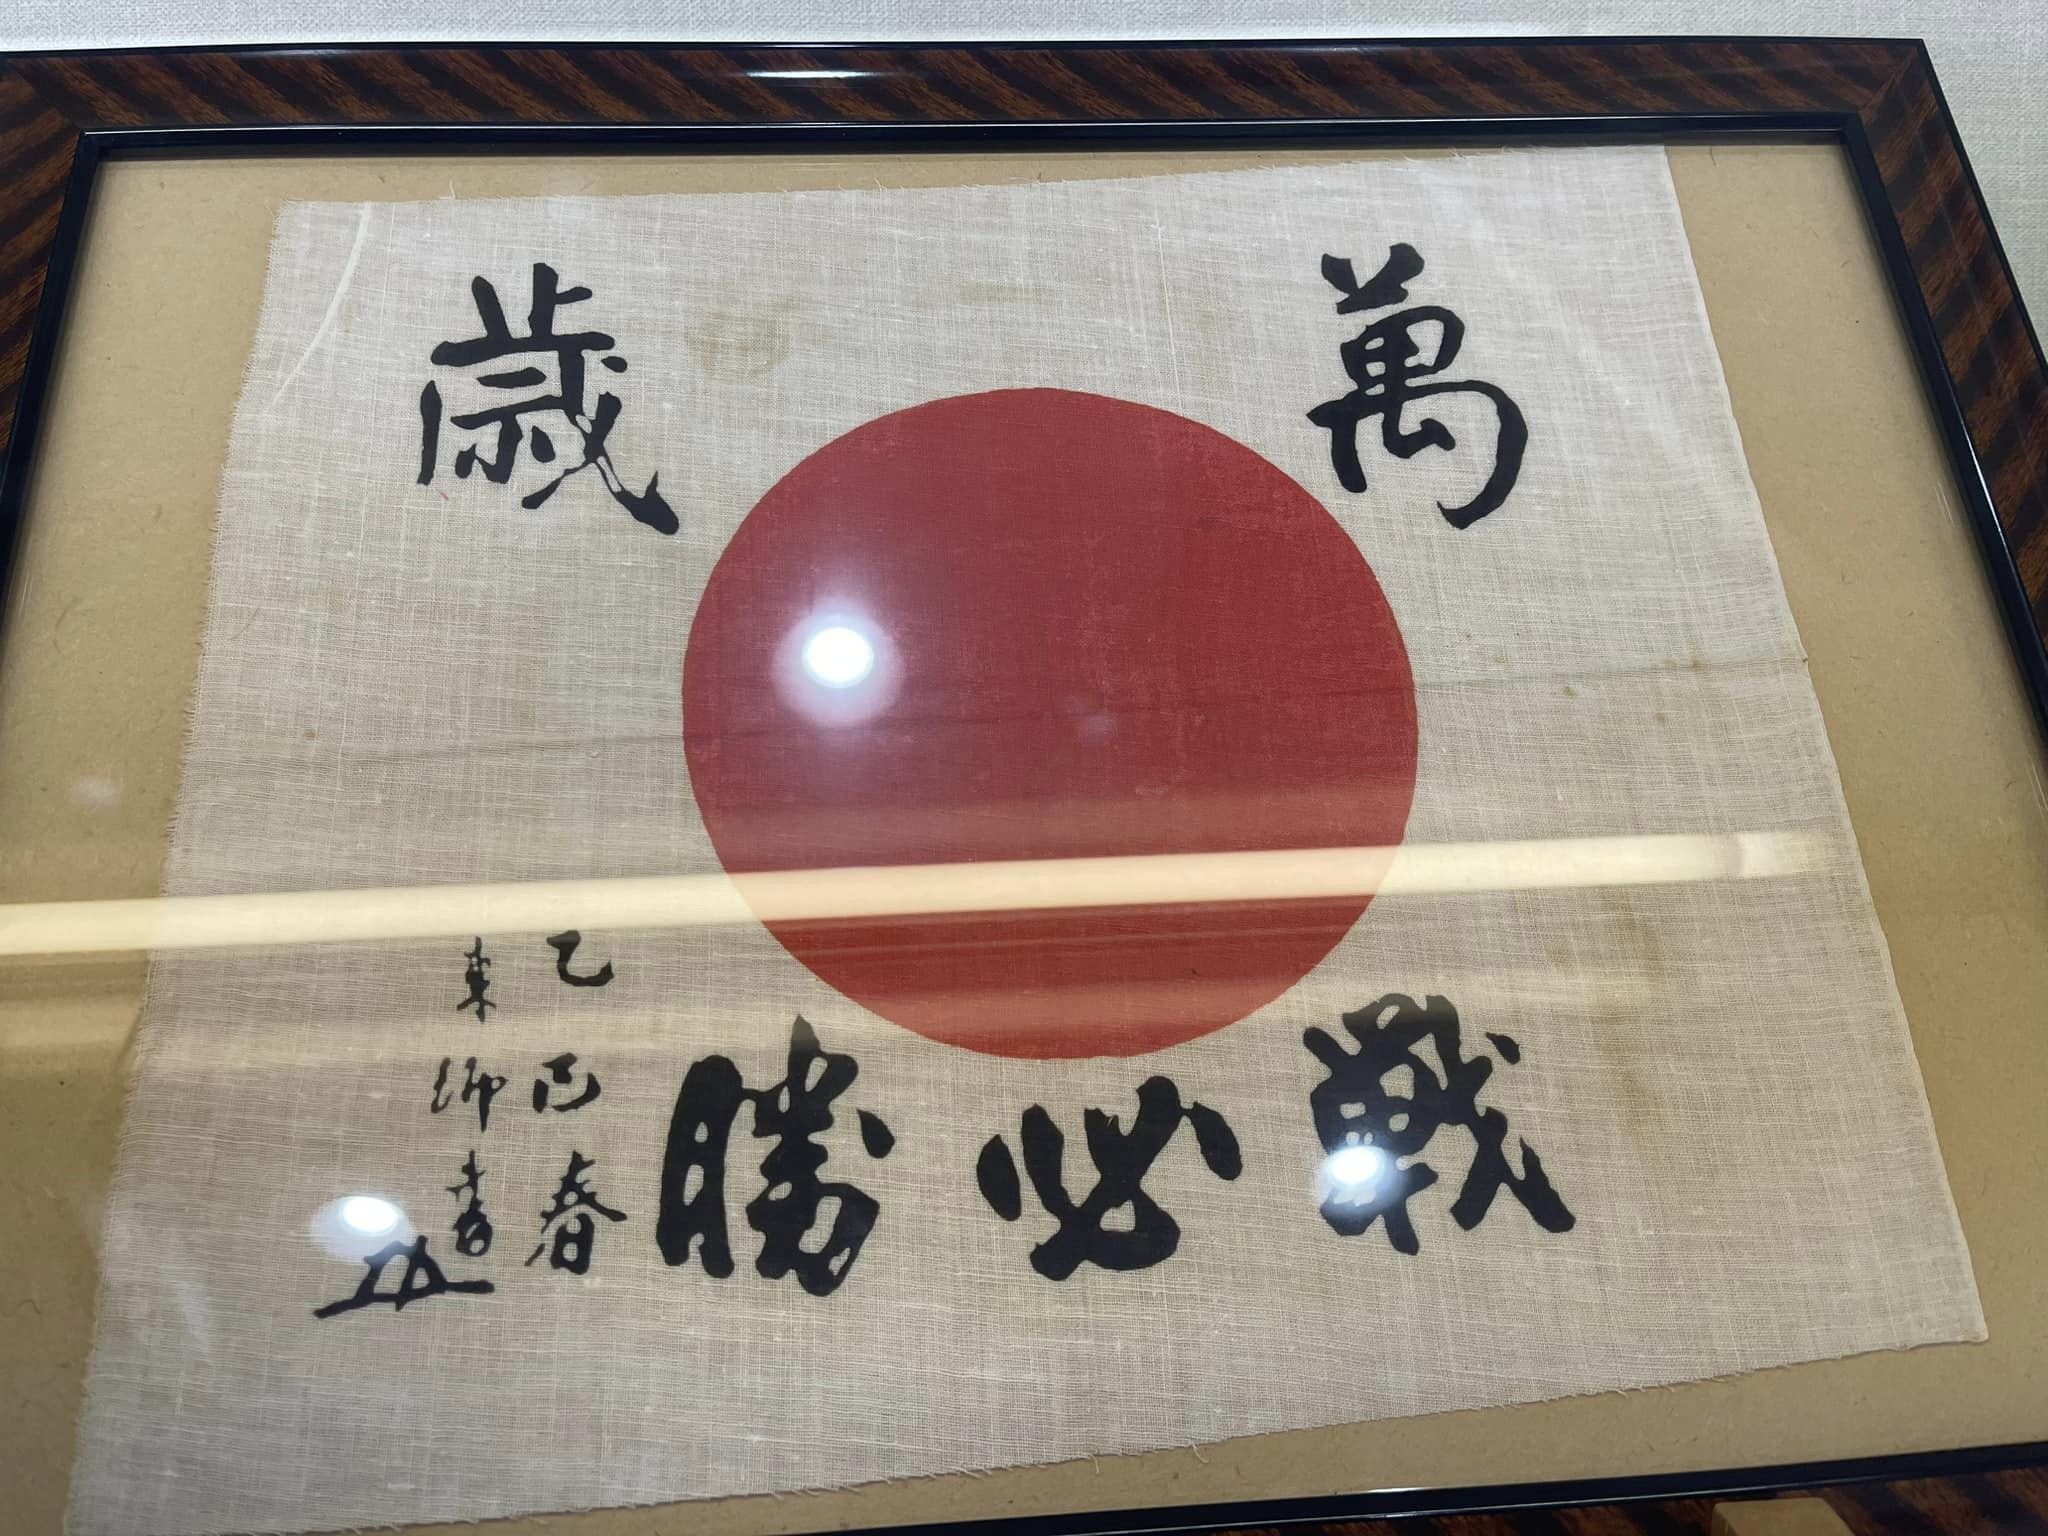 萬歳
戰必勝
乙巳春
東郷書